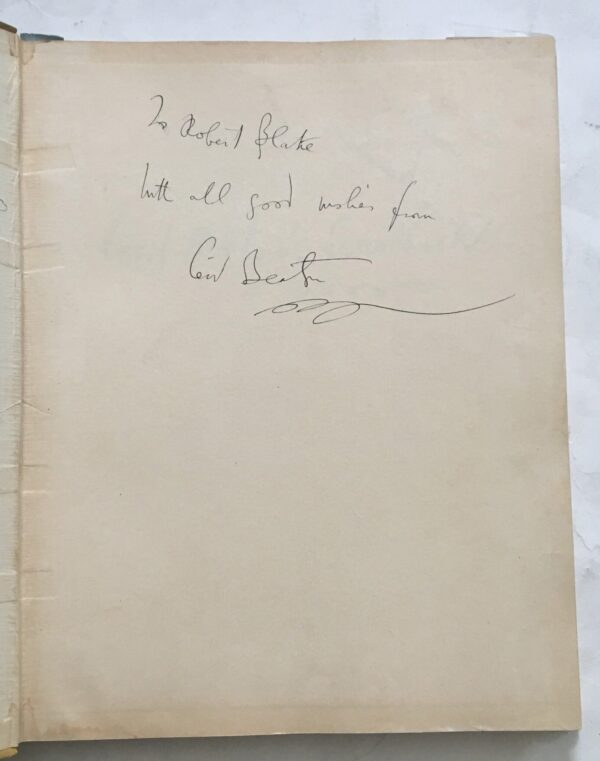 To Robert Blake
With all good wishes from
Cecil Beaton